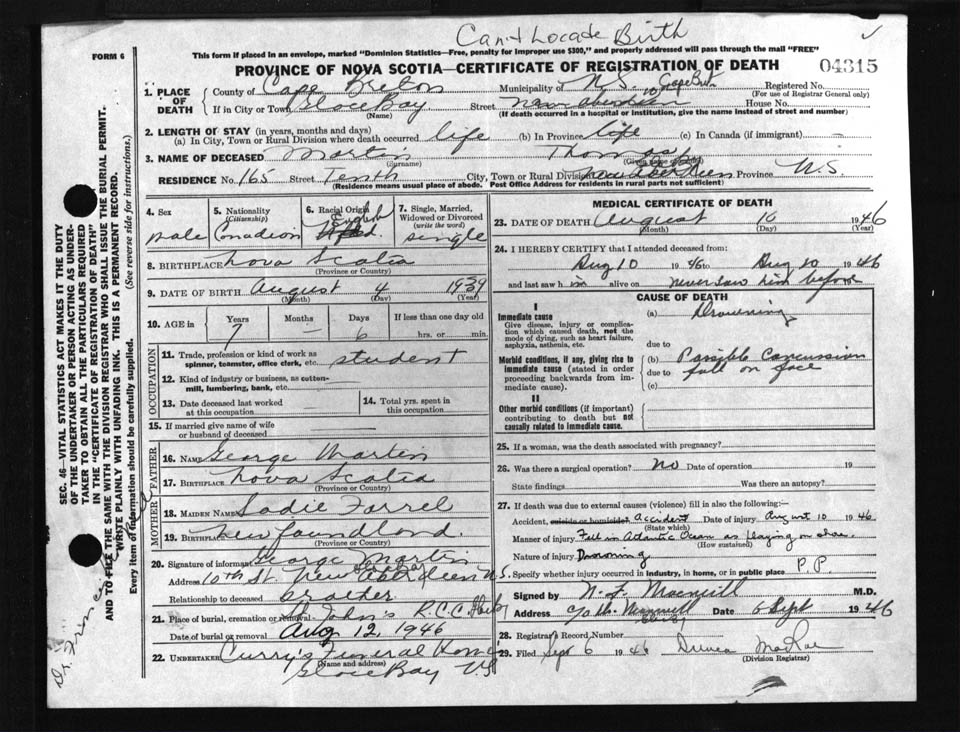 Can't Locate Birth
FORM 6
This form if placed in an envelope, marked "Dominion Statistics—Free, penalty for improper use $300," and properly addressed will pass through the mail "FREE"
PROVINCE OF NOVA SCOTIA—CERTIFICATE OF REGISTRATION OF DEATH 04315
1. PLACE OF DEATH
County of Cape Breton Municipality of N.S. Cape Bret Registered No.
(For use of Registrar General only)
If in City or Town Glace Bay Street 10 New Aberdeen House No.
(Name) (If death occurred in a hospital or institution, give the name instead of street and number)
2. LENGTH OF STAY (in years, months and days)
(a) In City, Town or Rural Division where death occurred life (b) In Province life (c) In Canada (if immigrant) —
3. NAME OF DECEASED Martin Thomas
(Surname)
RESIDENCE No. 165 Street Tenth City, Town or Rural Division New Aberdeen Province N.S.
(Residence means usual place of abode. Post Office Address for residents in rural parts not sufficient)
4. Sex Male
5. Nationality (Citizenship) Canadian
6. Racial Origin English
7. Single, Married, Widowed or Divorced (write the word) Single
8. BIRTHPLACE Nova Scotia
(Province or Country)
9. DATE OF BIRTH August 4 1939
(Month) (Day) (Year)
10. AGE in Years Months Days If less than one day old
7 — 6 hrs. or min.
OCCUPATION
11. Trade, profession or kind of work as spinner, teamster, office clerk, etc. student
12. Kind of industry or business, as cotton-mill, lumbering, bank, etc. —
13. Date deceased last worked at this occupation —
14. Total yrs. spent in this occupation
15. If married give name of wife or husband of deceased
FATHER
16. NAME George Martin
17. BIRTHPLACE Nova Scotia
(Province or Country)
MOTHER
18. MAIDEN NAME Sadie Farrel
19. BIRTHPLACE Newfoundland.
(Province or Country)
20. Signature of informant George Martin
Address 10th St. New Aberdeen N.S.
Relationship to deceased brother
21. Place of burial, cremation or removal St John's R.C.C.
Date of burial or removal Aug 12, 1946
22. UNDERTAKER Curry's Funeral Home
(Name and address)
Glace Bay N.S.
MEDICAL CERTIFICATE OF DEATH
23. DATE OF DEATH August 10 1946
(Month) (Day) (Year)
24. I HEREBY CERTIFY that I attended deceased from:
Aug 10 1946 to Aug 10 1946
and last saw him alive on never saw him before
CAUSE OF DEATH
I
Immediate cause
Give disease, injury or complication which caused death, not the mode of dying, such as heart failure, asphyxia, asthenia, etc.
(a) Drowning
due to
Morbid conditions, if any, giving rise to immediate cause (stated in order proceeding backwards from immediate cause).
(b) Possible Concussion
due to fall on face
(c)
II
Other morbid conditions (if important) contributing to death but not causally related to immediate cause.
25. If a woman, was the death associated with pregnancy?
26. Was there a surgical operation? no Date of operation 19
State findings Was there an autopsy?
27. If death was due to external causes (violence) fill in also the following:—
Accident, suicide or homicide? Accident Date of injury August 10 1946
(State which)
Manner of injury Fell in Atlantic Ocean as playing on shore.
(How sustained)
Nature of injury Drowning
Specify whether injury occurred in industry, in home, or in public place P.P.
Signed by M.D.
Address Date 6 Sept 1946
28. Registrar's Record Number
29. Filed Sept 6 1946 MacRae
(Division Registrar)
SEC. 46—VITAL STATISTICS ACT MAKES IT THE DUTY
OF THE UNDERTAKER OR PERSON ACTING AS UNDER-
TAKER TO OBTAIN ALL THE PARTICULARS REQUIRED
IN THE "CERTIFICATE OF REGISTRATION OF DEATH"
AND TO FILE THE SAME WITH THE DIVISION REGISTRAR WHO SHALL ISSUE THE BURIAL PERMIT.
WRITE PLAINLY WITH UNFADING INK. THIS IS A PERMANENT RECORD.
Every item of information should be carefully supplied. (See reverse side for instructions.)